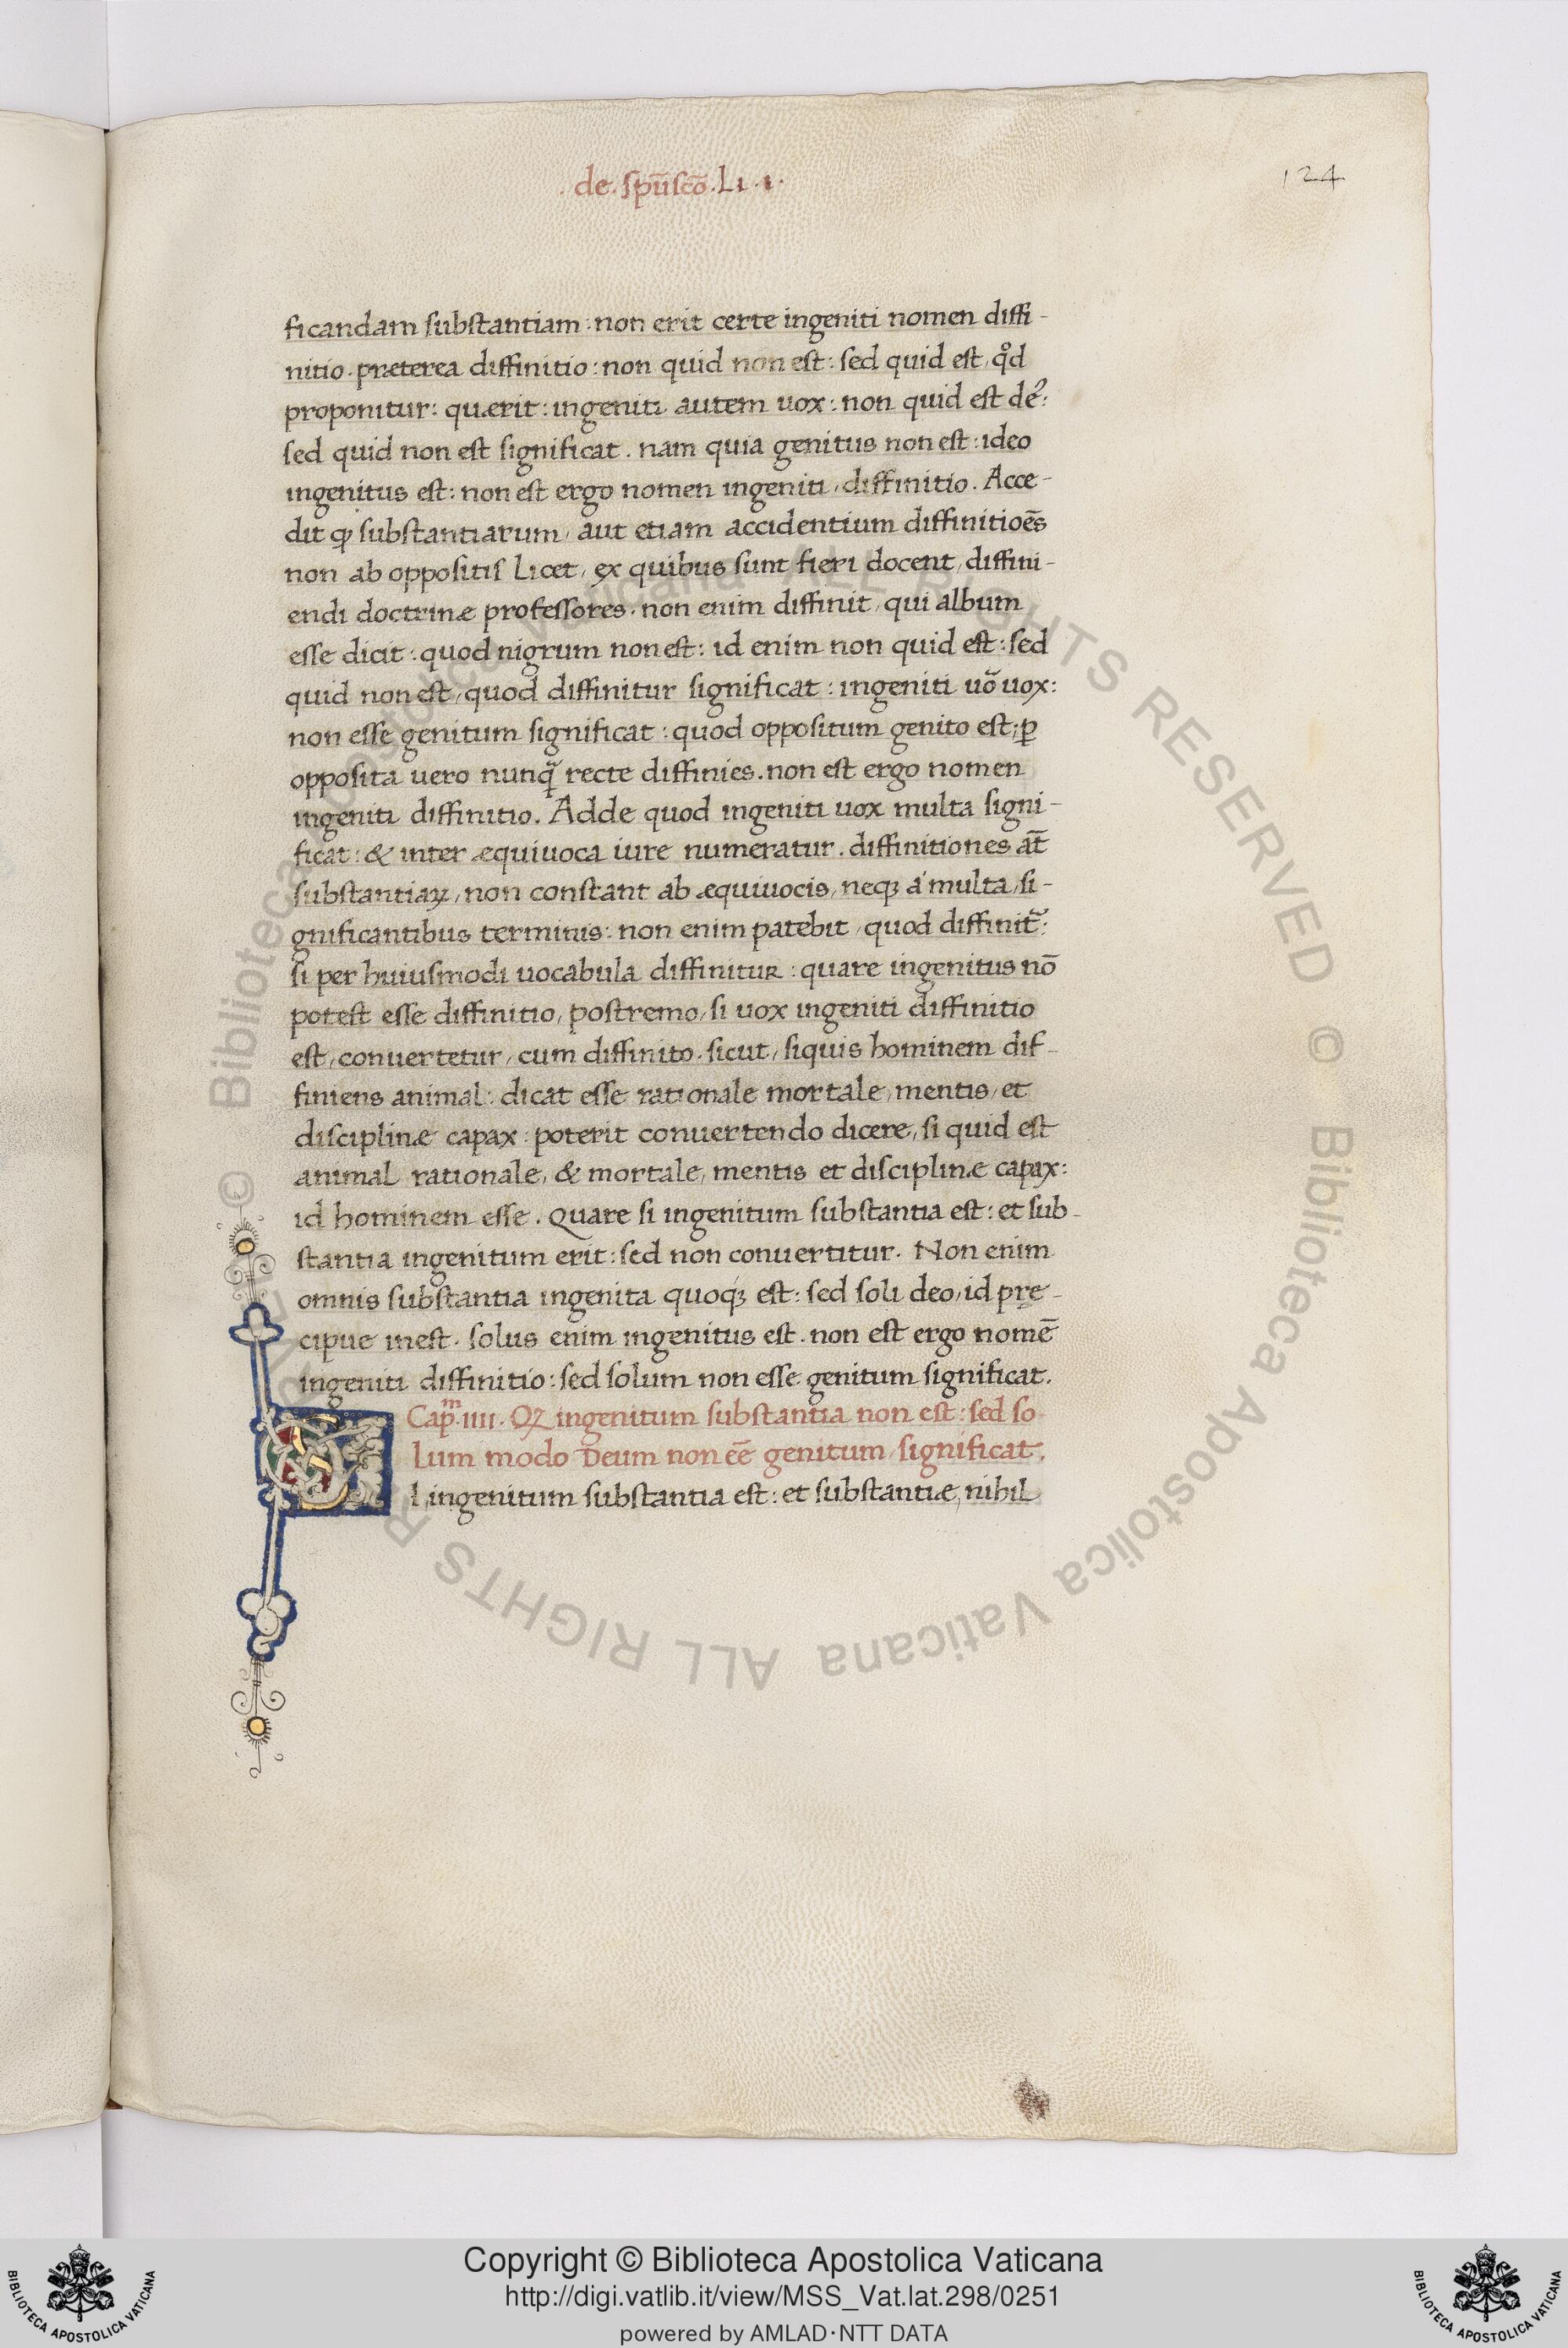 .de. spũscõ. Li. i.
124
ficandam substantiam: non erit certe ingeniti nomen diffi-
nitio. præterea diffinitio: non quid non est: sed quid est, qͦd
proponitur: quærit: ingeniti autem uox: non quid est de᷒:
sed quid non est significat. nam quia genitus non est: ideo
ingenitus est: non est ergo nomen ingeniti, diffinitio. Acce-
dit ꝙ substantiarum, aut etiam accidentium diffinitioẽs
non ab oppositis Licet, ex quibus sunt fieri docent, diffini-
endi doctrinæ professores. non enim diffinit, qui album
esse dicit: quod nigrum non est: id enim non quid est: sed
quid non est, quod diffinitur significat: ingeniti uõ uox:
non esse genitum significat: quod oppositum genito est; ꝑ
opposita uero nunq̃ recte diffinies. non est ergo nomen
ingeniti diffinitio. Adde quod ingeniti uox multa signi-
ficat: & inter æquiuoca iure numeratur. diffinitiones at̃
substantiaꝝ, non constant ab æquiuocis, neqꝫ a multa, si-
gnificantibus terminis: non enim patebit, quod diffinit᷑:
si per huiusmodi uocabula diffinitur: quare ingenitus nõ
potest esse diffinitio, postremo, si uox ingeniti diffinitio
est, conuertetur, cum diffinito. sicut, siquis hominem dif-
finiens animal: dicat esse rationale mortale, mentis, et
disciplinæ capax: poterit conuertendo dicere, si quid est
animal rationale, & mortale, mentis et disciplinæ capax:
id hominem esse. Quare si ingenitum substantia est: et sub-
stantia ingenitum erit: sed non conuertitur. Non enim
omnis substantia ingenita quoqꝫ est: sed soli deo, id prę-
cipue inest. solus enim ingenitus est. non est ergo nomẽ
ingeniti diffinitio: sed solum non esse genitum significat.
Cap̃ᵐ. iiii. Qꝫ ingenitum substantia non est: sed so
lum modo Deum non eẽ genitum, significat.
I, ingenitum substantia est: et substantiæ, nihil
© Biblioteca Apostolica Vaticana ALL RIGHTS RESERVED © Biblioteca Apostolica Vaticana ALL RIGHTS RESERVED
Copyright © Biblioteca Apostolica Vaticana
http://digi.vatlib.it/view/MSS_Vat.lat.298/0251
powered by AMLAD·NTT DATA
BIBLIOTECA APOSTOLICA VATICANA
BIBLIOTECA APOSTOLICA VATICANA